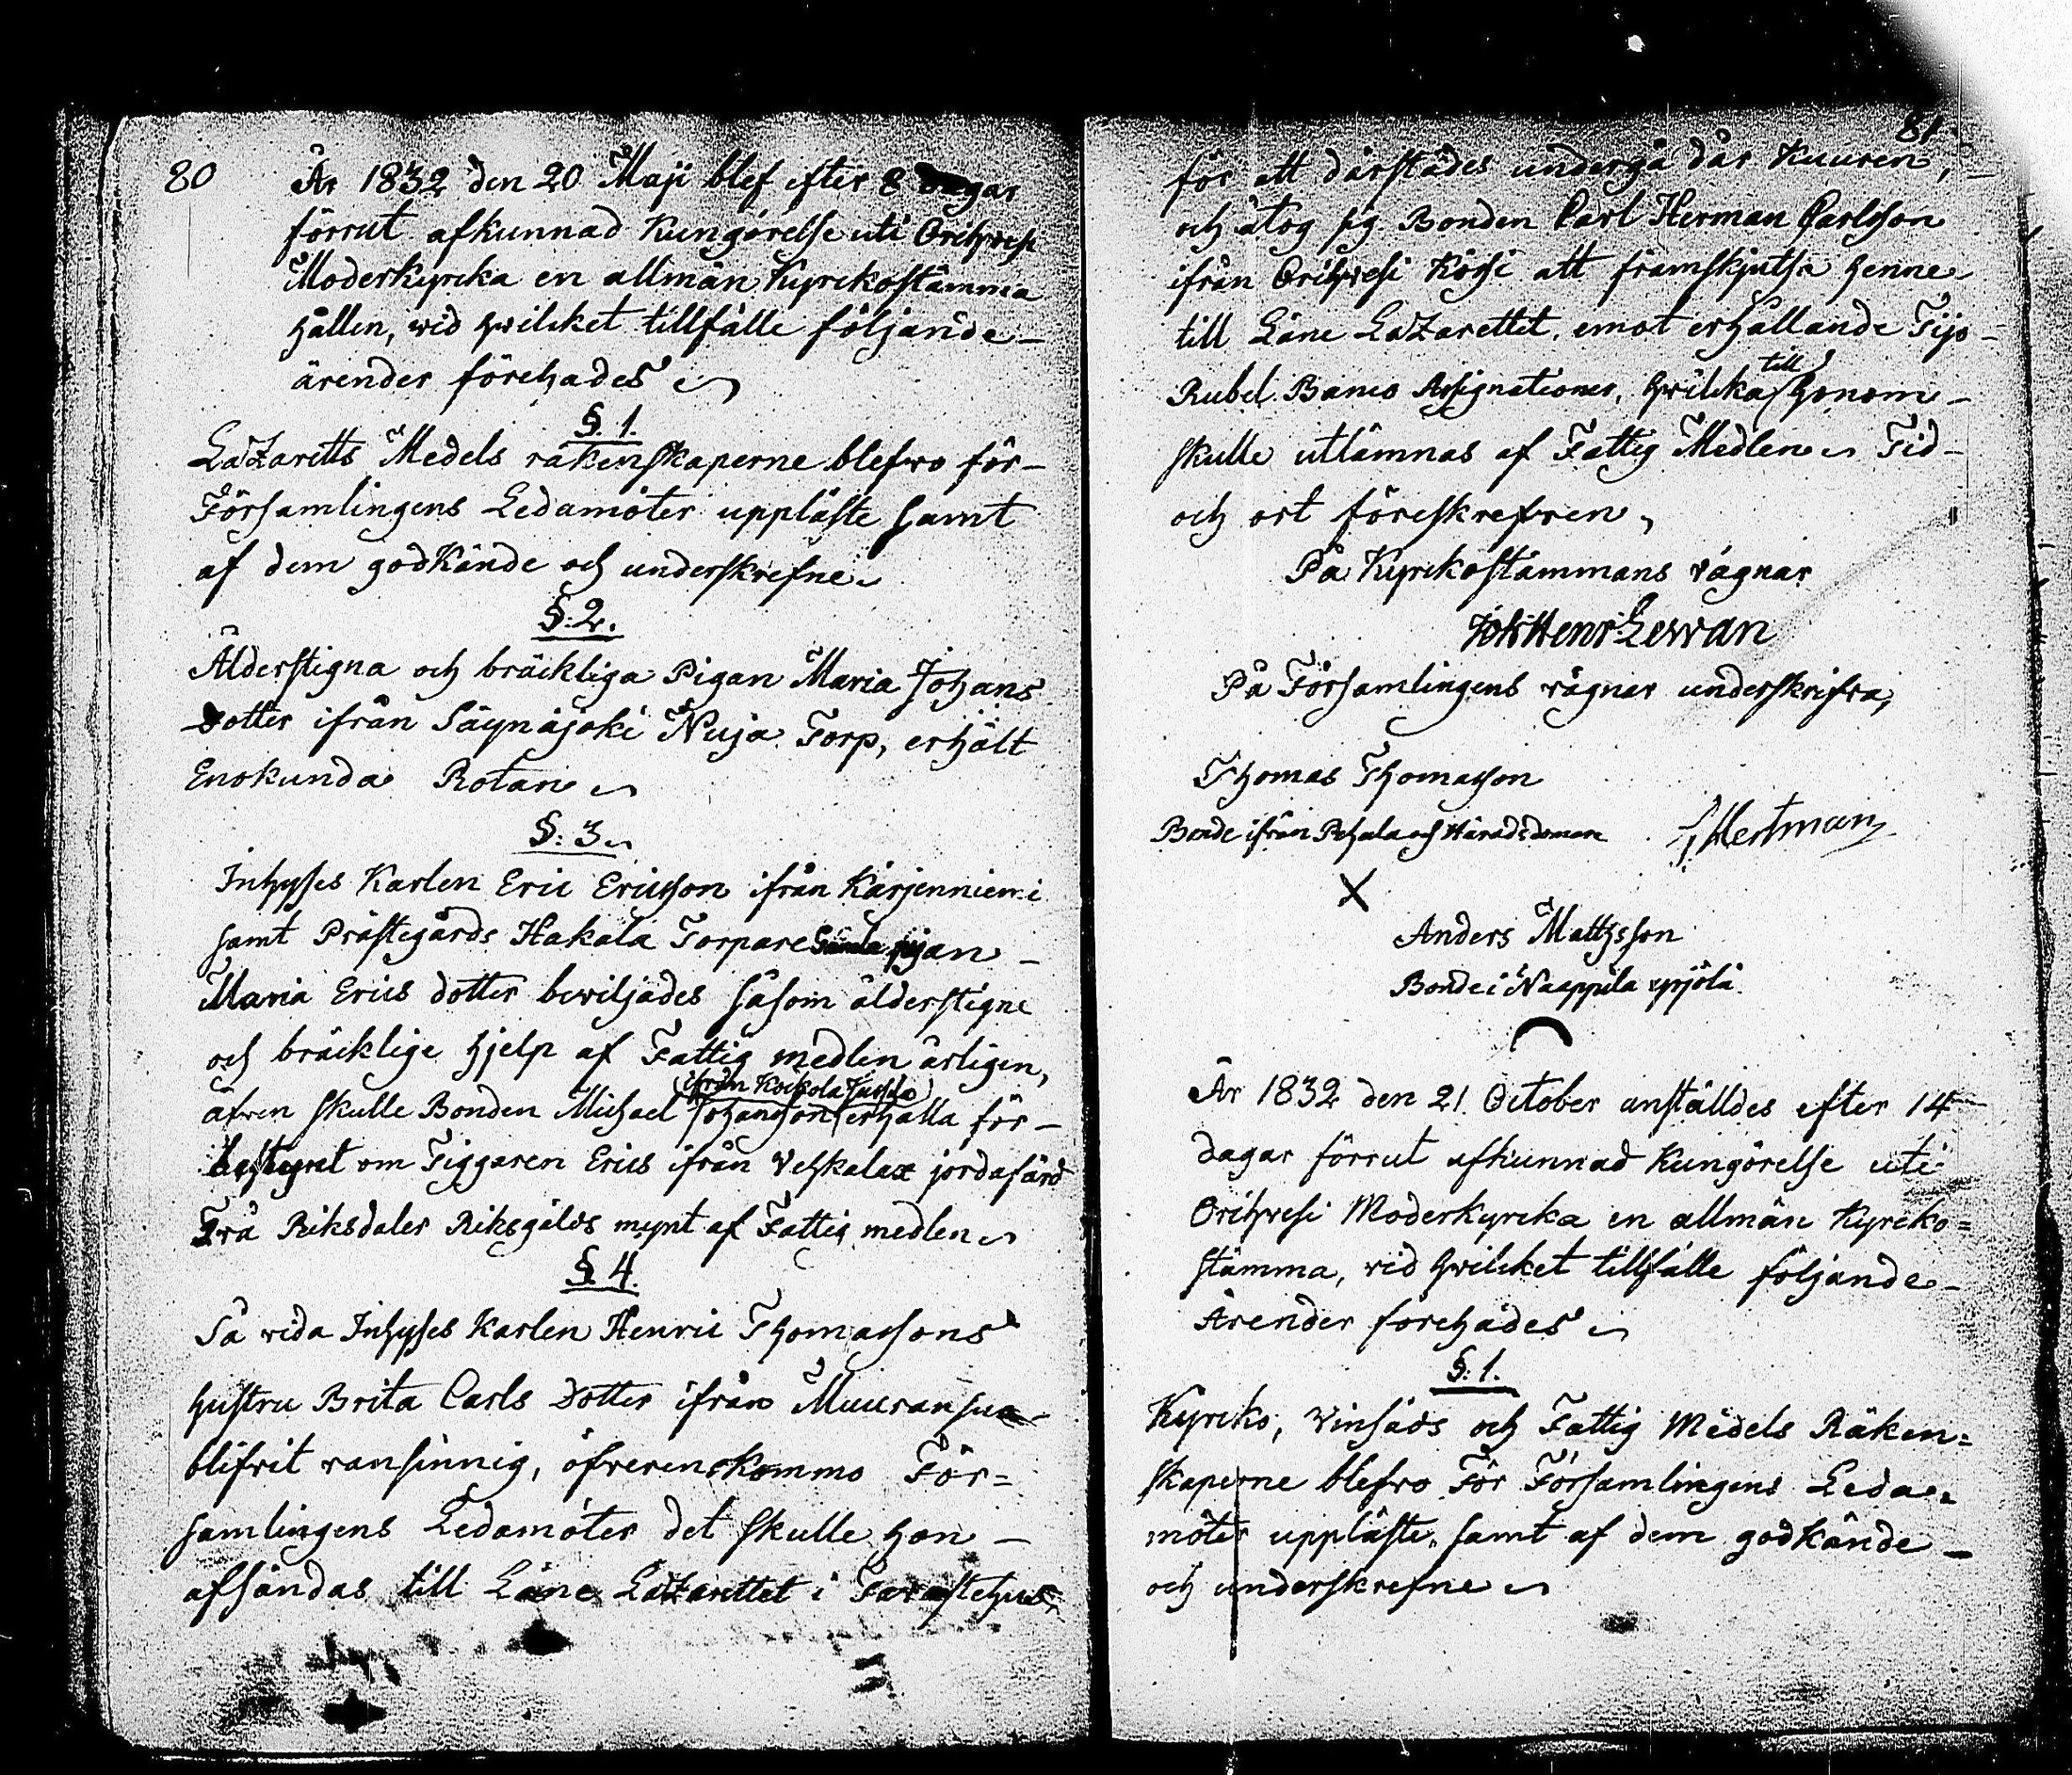 80
År 1832 den 20 Maji blef efter 8 dagar
förrut afkunnad Kungörelse uti Orihvesi
Moderkyrcka en allmän Kyrckostämma
hållen, wid hwilcket tillfälle följande
ärender förehades
§. 1.
Lazaretts Medels räkenskaperne blefvo för
Församlingens Ledamöter uppläste samt
af dem godkände och underskrefne
§. 2.
Ålderstigna och bräckliga Pigan Maria Johans
dotter ifrån Säynäjoki Nuja Torp, erhält
Enokunda Rotan
§. 3
Inhyses Karlen Eric Ericsson ifrån Kärjenniemi
samt Prästegårds Hakala Torpare pigan
Maria Erics dotter beviljades såsom ålderstigne
och bräcklige hjelp af Fattig medlen årligen,
ifrån Kockola Jussila
äfven skulle Bonden Michael Johansson erhålla för
bestyret om Tiggaren Erics ifrån Vehkalax jordafärd
Två Riksdaler Riksgälds mynt af Fattig medlen
§ 4.
Så vida Inhyses Karlen Henric Thomassons
hustru Brita Carls dotter ifrån Muuransuo
blifvit vansinnig, öfverenskommo För=
samlingens Ledamöter det skulle hon
afsändas till Läne Lazarettet i Tavastehus,
81
för att därstädes undergå där Kuuren,
och åtog sig Bonden Carl Herman Carlsson
ifrån Orihvesi Kossi att framskjutsa henne
till Läne Lazarettet emot erhållande Tijo
till
Rubel Banco Assignationer, hvilcka honom
skulle utlämnas af Fattig Medlen Tid
och ort föreskrefven,
På Kyrckostämmans vägnar
Joh Henr: Levvan
På Församlingens vägnar underskrifva,
Thomas Thomasson
Bonde ifrån Pehula och Häradsdomare
Hertman
X
Anders Mattsson
Bonde i Naappila ypjölä
År 1832 den 21 October anställdes efter 14
dagar förrut afkunnad Kungörelse uti
Orihvesi Moderkyrcka en allmän Kyrcko=
stämma, vid hvilcket tillfälle följande
Ärender förehades
§. 1.
Kyrcko, Vinsäds och Fattig Medels Räken=
skaperne blefvo För Församlingens Leda=
möter uppläste, samt af dem godkände
och underskrefne